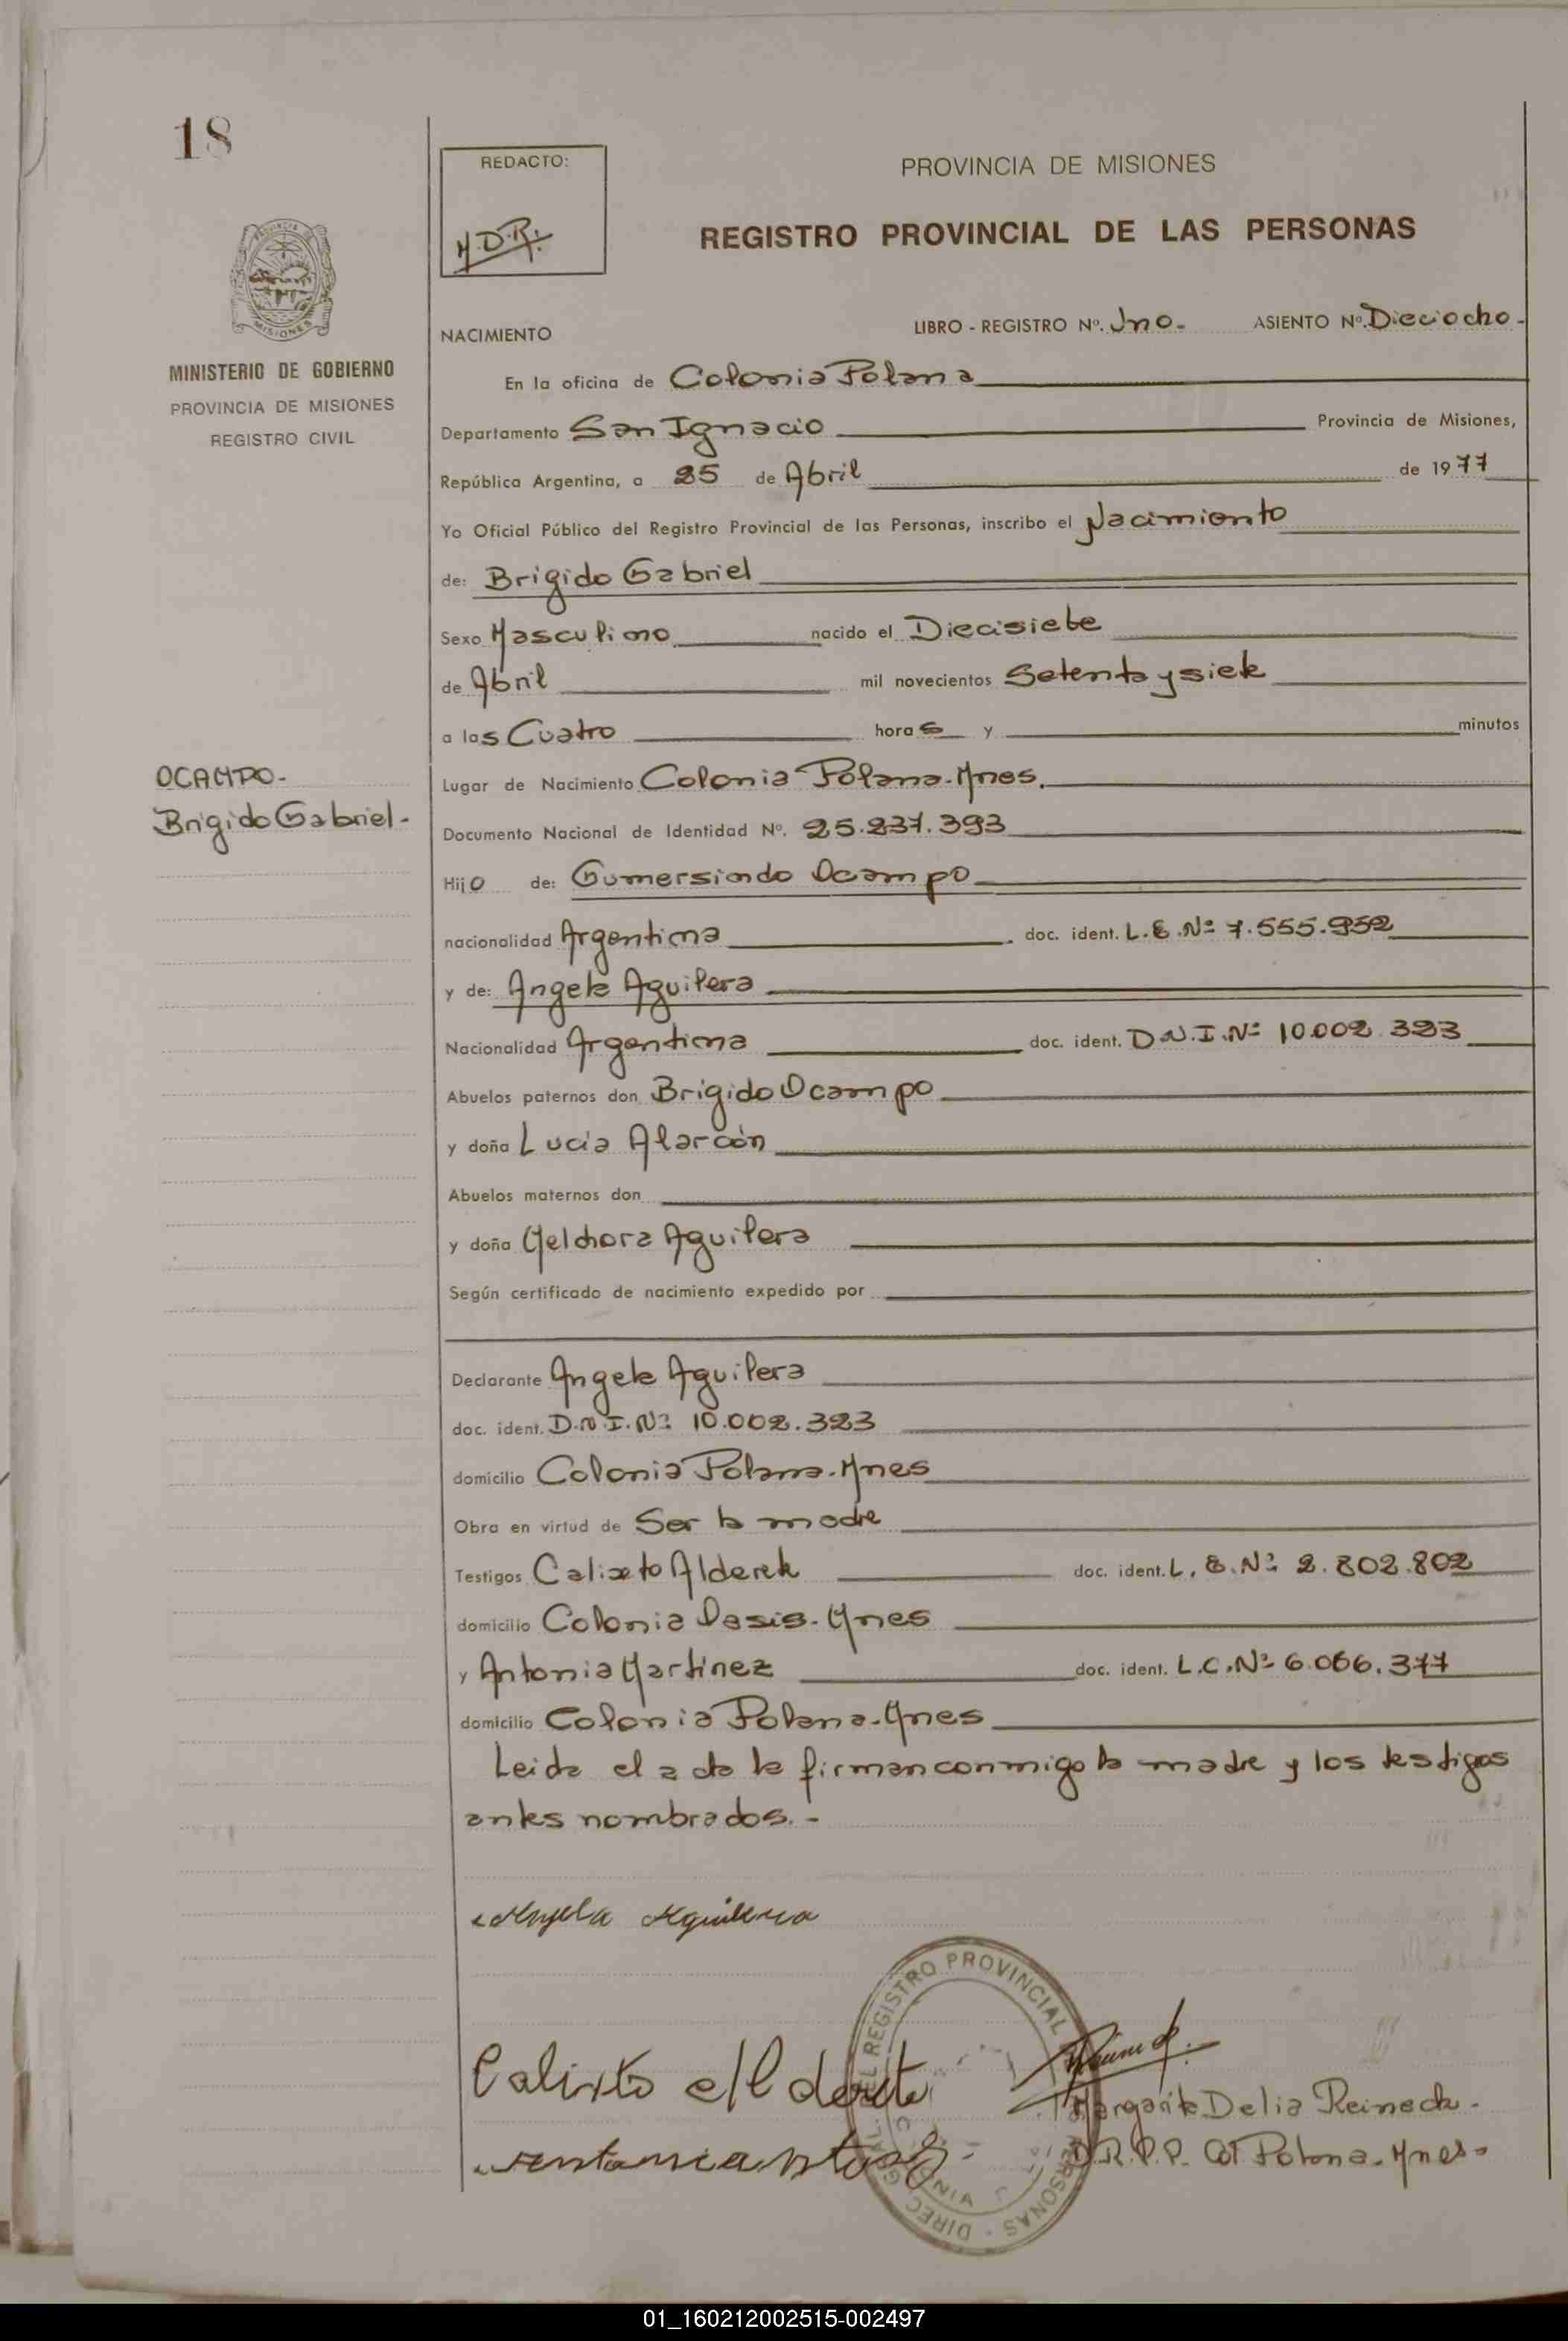 18
REDACTO:
M.D.R.
PROVINCIA DE MISIONES
REGISTRO PROVINCIAL DE LAS PERSONAS
PROVINCIA DE MISIONES
MINISTERIO DE GOBIERNO
PROVINCIA DE MISIONES
REGISTRO CIVIL
NACIMIENTO LIBRO - REGISTRO Nº. Uno. ASIENTO Nº. Dieciocho -
En la oficina de Colonia Polana
Departamento San Ignacio Provincia de Misiones,
República Argentina, a 25 de Abril de 1977
Yo Oficial Público del Registro Provincial de las Personas, inscribo el Nacimiento
de: Brigido Gabriel
Sexo Masculino nacido el Diecisiete
de Abril mil novecientos Setenta y siete
a las Cuatro horas y minutos
OCAMPO-
Brigido Gabriel -
Lugar de Nacimiento Colonia Polana-Mnes.
Documento Nacional de Identidad Nº. 25.237.393
Hijo de: Gumersindo Ocampo
nacionalidad Argentina doc. ident. L.E.Nº 7.555.952
y de: Angela Aguilera
Nacionalidad Argentina doc. ident. D.N.I.Nº 10.002.323
Abuelos paternos don Brigido Ocampo
y doña Lucia Alarcón
Abuelos maternos don
y doña Melchora Aguilera
Según certificado de nacimiento expedido por
Declarante Angela Aguilera
doc. ident. D.N.I.Nº 10.002.323
domicilio Colonia Polana-Mnes
Obra en virtud de Ser la madre
Testigos Calixto Alderete doc. ident. L.E.Nº 2.802.802
domicilio Colonia Oasis-Mnes
y Antonia Martinez doc. ident. L.C.Nº 6.066.377
domicilio Colonia Polana-Mnes
Leida el acta la firman conmigo la madre y los testigos
antes nombrados.-
Angela Aguilera
REGISTRO PROVINCIAL
PERSONAS
Calixto Alderete
Margarita Delia Reineck-
O.R.P.P. Col Polana-Mnes-
01_160212002515-002497